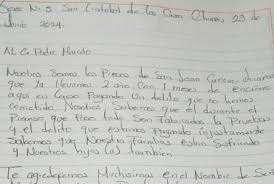 Nº 5. San Cristobal de las Casas Chiapas 23 de
Junio 2024.
AL. C. Padre Marcelo
Nosotros Somos los Presos de San Juan Cancuc chiapas
que Ya llevamos 2 años Con 1 meses de encierro
aqui en Pagando Un delito que no hemos
Cometido Nosotros Sabemos que el durante el
Proceso que todo lado Son fabricados la Pruebas
Y el delito que estamos Pagando injustamente
Sabemos que Nuestra familias estan Sufriendo
Y Nuestros hijos (a) tambien
Te agradecemos Muchisimas en el Nombre de Señ